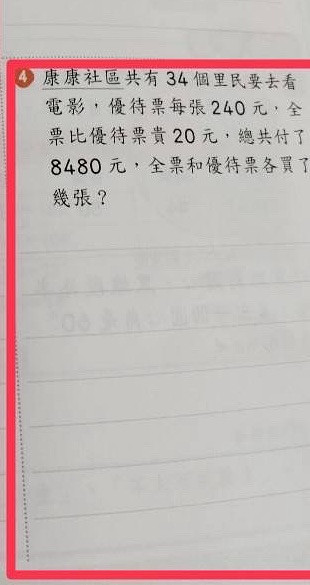 4 康康社區共有34個里民要去看
電影，優待票每張240元，全
票比優待票貴20元，總共付了
8480元，全票和優待票各買了
幾張？